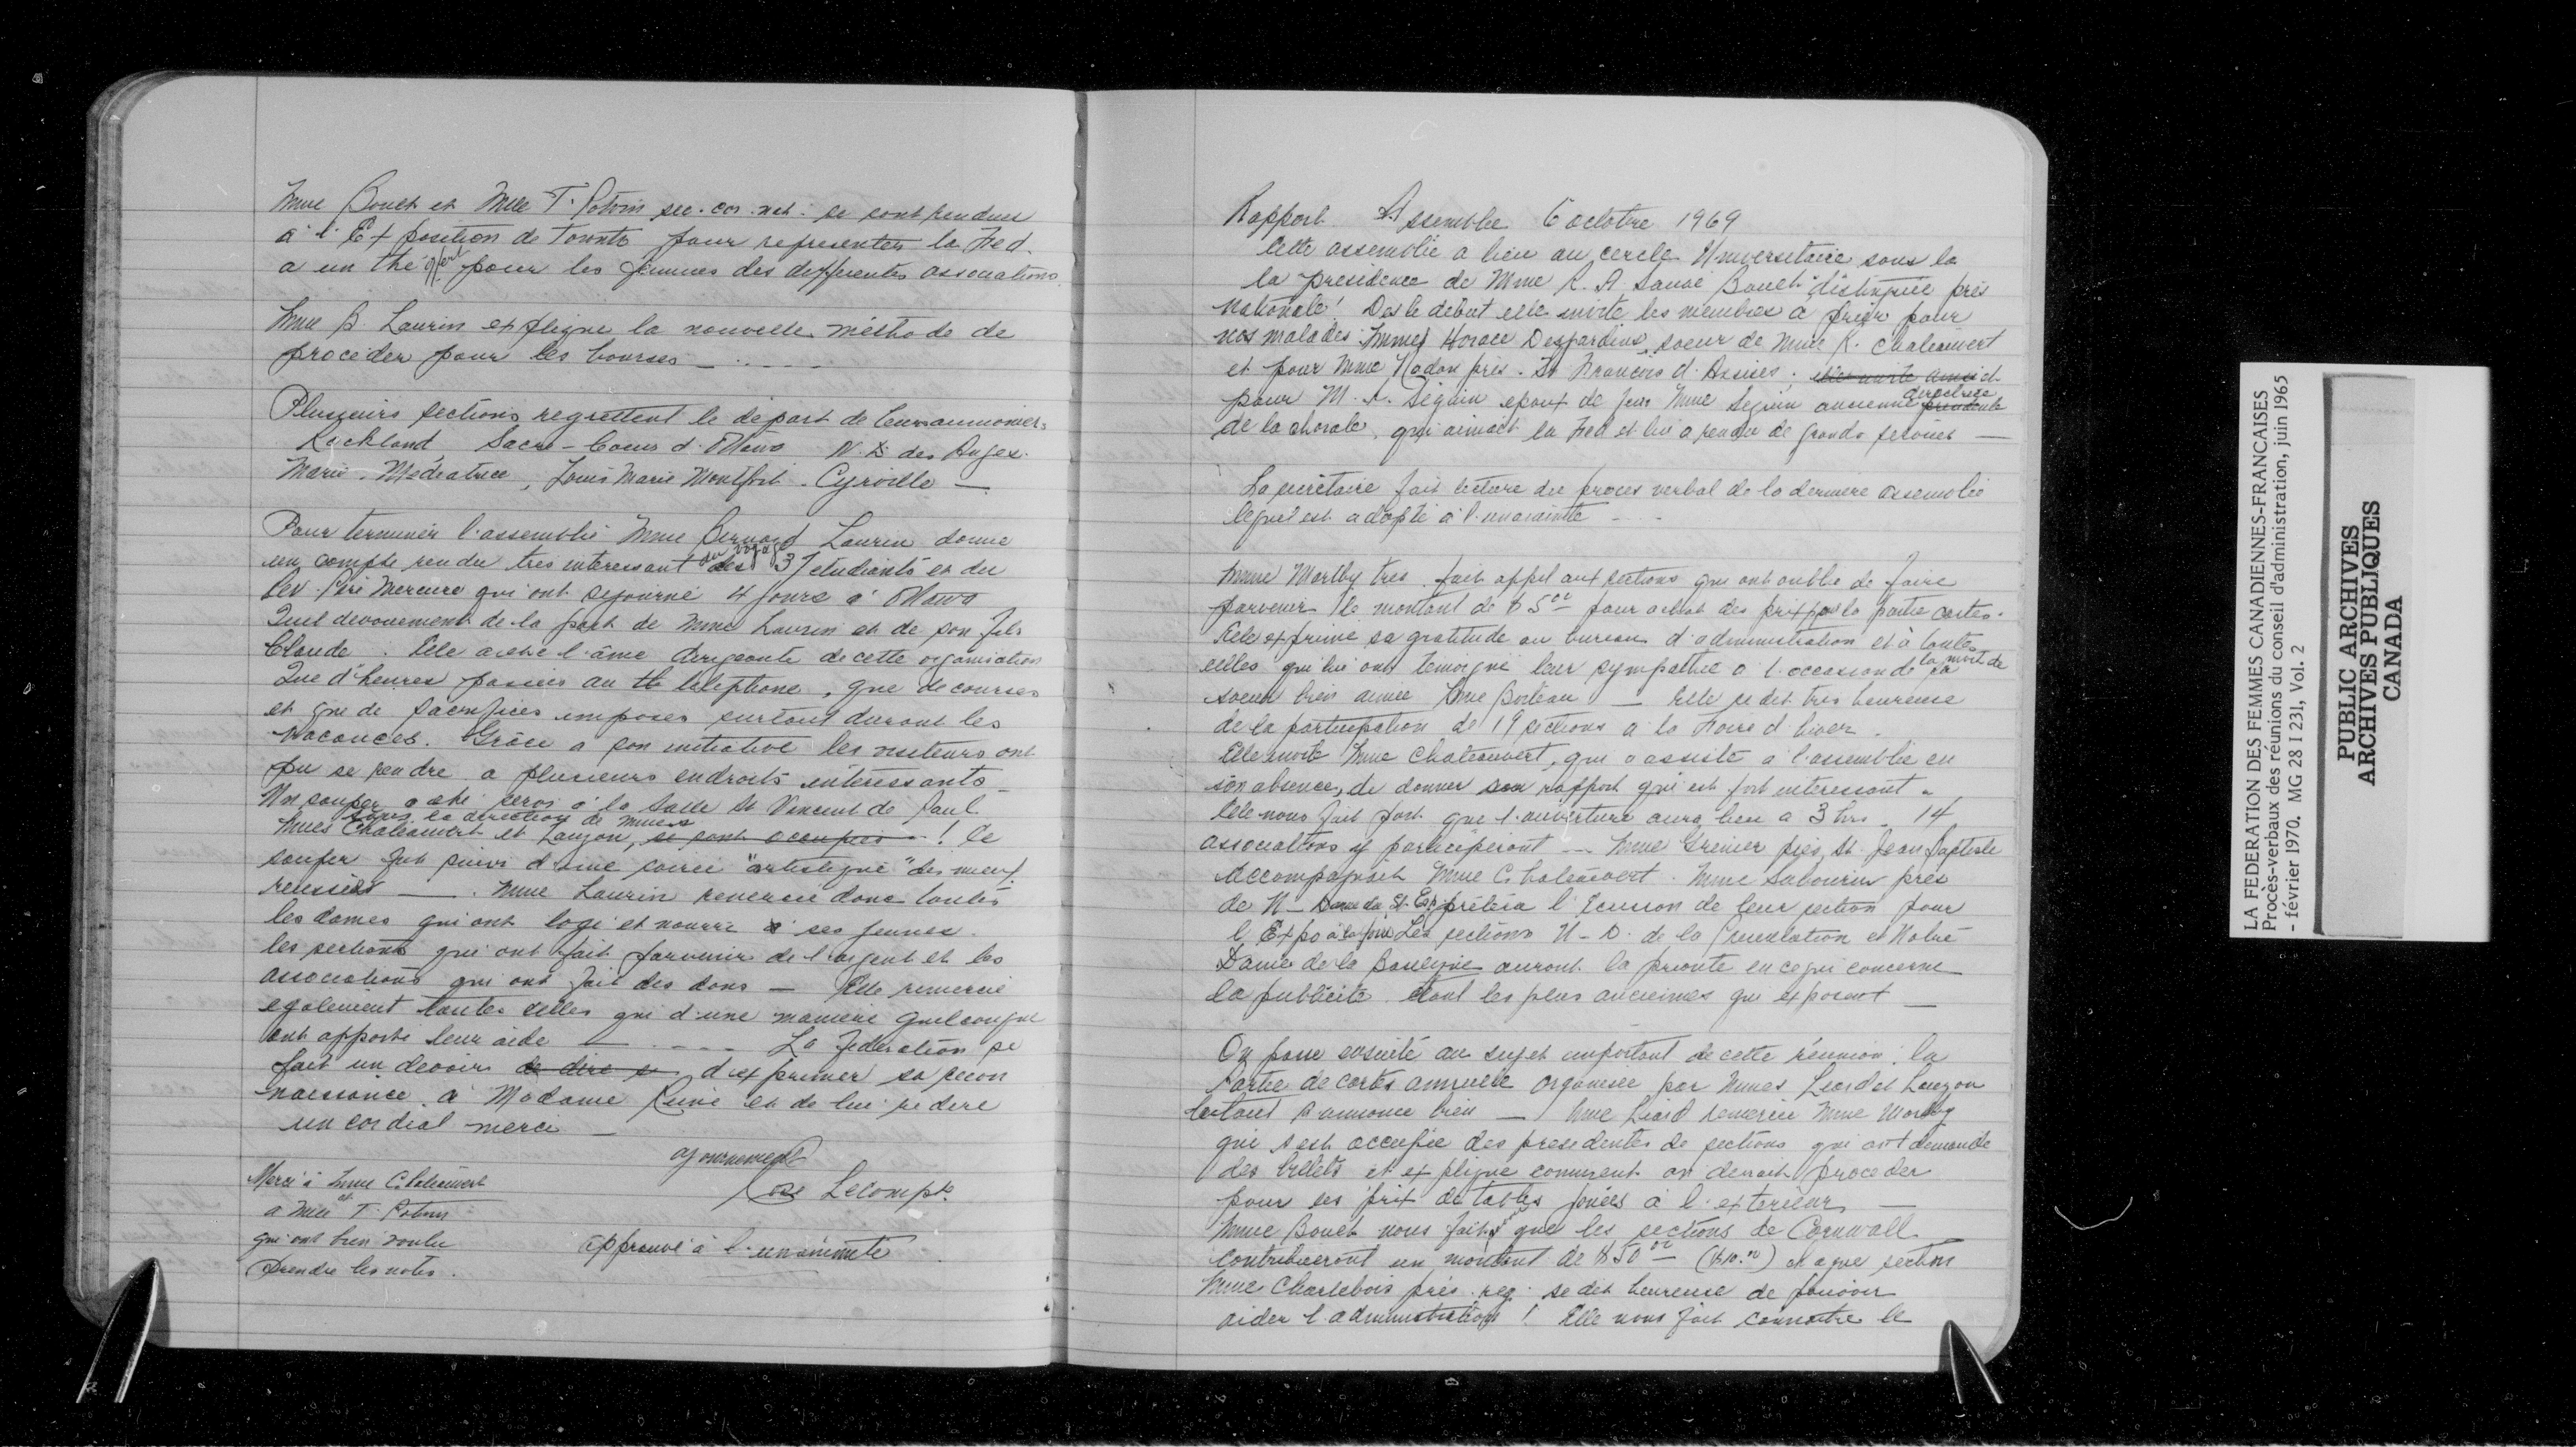 Mme Bouch et Mlle T. Potvin sec. cor. nat. se sont rendues
à l'Exposition de Toronto pour representer la Fed.
a un thé offert pour les femmes des differentes associations.
Mme B. Laurin explique la nouvelle méthode de
procéder pour les bourses
Plusieurs sections regrettent le départ de leurs aumoniers
Rockland Sacré-Coeur d'Ottawa N.D. des Anges.
Marie-Médiatrice, Louis Marie Montfort. Cyrville —
Pour terminer l'assemblée Mme Bernard Laurin donne
un compte rendu très interessant du voyage des 37 etudiants et du
Rev. Père Mercure qui ont séjourné 4 jours à Ottawa
Quel dévouement de la part de Mme Laurin et de son fils
Claude. Elle a été l'âme dirigeante de cette organisation
Que d'heures passées au telephone, que de courses
et que de sacrifices imposés surtout durant les
vacances. Grâce a son initiative les visiteurs ont
pu se rendre a plusieurs endroits intéressants —
Un souper a été servi à la Salle St Vincent de Paul
sous la direction de Mmes
Mmes Chateauvert et Lauzon, se sont occupées ! Ce
souper fut suivi d'une soirée "artistique" des mieux
reussies — . Mme Laurin remercie donc toutes
les dames qui ont logé et nourri ses jeunes.
les sections qui ont fait parvenir de l'argent et les
associations qui ont fait des dons — Elle remercie
egalement toutes celles qui d'une maniere quelconque
ont apporté leur aide — La Federation se
fait un devoir de dire s d'exprimer sa recon
naissance à Madame et de lui redire
un cordial merci —
ajournement
Lecompte
Merci à Mme Chateauvert
et
a Mlle T. Potvin
qui ont bien voulu
prendre les notes.
approuvé à l'unanimité
Rapport Assemblée 6 octobre 1969
Cette assemblée a lieu au cercle Universitaire sous la
la présidence de Mme R. A. Sauvé Bouch "distinguée prés
nationale! Des le debut elle invite les membres à prier pour
nos malades Mmes Horace Desjardins, soeur de Mme R. Chateauvert
et pour Mme Nadon prés. St François d'Assises; elle invite aussi et
pour M. A. Séguin epoux de feue Mme Seguin ancienne directrice présidente
de la chorale, qui aimait la Fed et lui a rendu de grands services —
La secrétaire fait lecture du procès verbal de la derniere assemblée
lequel est adopté à l'unanimité
Mme Mortby tres. fait appel aux sections qui ont oublié de faire
parvenir le montant de $5.00 pour achat des prix pour la partie cartes.
Elle exprime sa gratitude au bureau d'administration et à toutes
celles qui lui ont temoigné leur sympathie à l'occasion de la mort de sa
soeur bien aimée Mme — Elle se dit tres heureuse
de la participation de 19 sections a la Foire d'hiver.
Elle invite Mme Chateauvert, qui a assisté a l'assemblée en
son absence, de donner son rapport qui est fort interessant.
Elle nous fait part que l'ouverture aura lieu a 3 hrs. 14
associations y participeront — Mme Grenier prés, St. Jean Baptiste
accompagnait Mme Chateauvert. Mme Sabourin prés
de N-Dame du St. Esp. prêtera l'Ecusson de leur section pour
l'Expo à la foire Les sections N-D. de la et Notre
Dame de la auront la priorité en ce qui concerne
la publicité étant les plus anciennes qui exposent —
On passe ensuite au sujet important de cette réunion: la
Partie de cartes annuelle organisée par Mmes Liard et Lauzon
Le tout s'annonce bien — Mme Liard remercie Mme Mortby
qui s'est occupée des présidentes de sections qui ont demandé
des billets et explique comment on devrait procéder
pour les prix de tables jouées à l'exterieur —
Mme Bouch nous fait part que les sections de Cornwall
contribueront un montant de $50.00 — ($10.00) chaque section
Mme Charlebois prés. reg. se dit heureuse de pouvoir
aider l'administration ! Elle nous fait connaitre le
LA FEDERATION DES FEMMES CANADIENNES-FRANCAISES
Procès-verbaux des réunions du conseil d'administration, juin 1965
- février 1970. MG 28 I 231, Vol. 2
PUBLIC ARCHIVES
ARCHIVES PUBLIQUES
CANADA